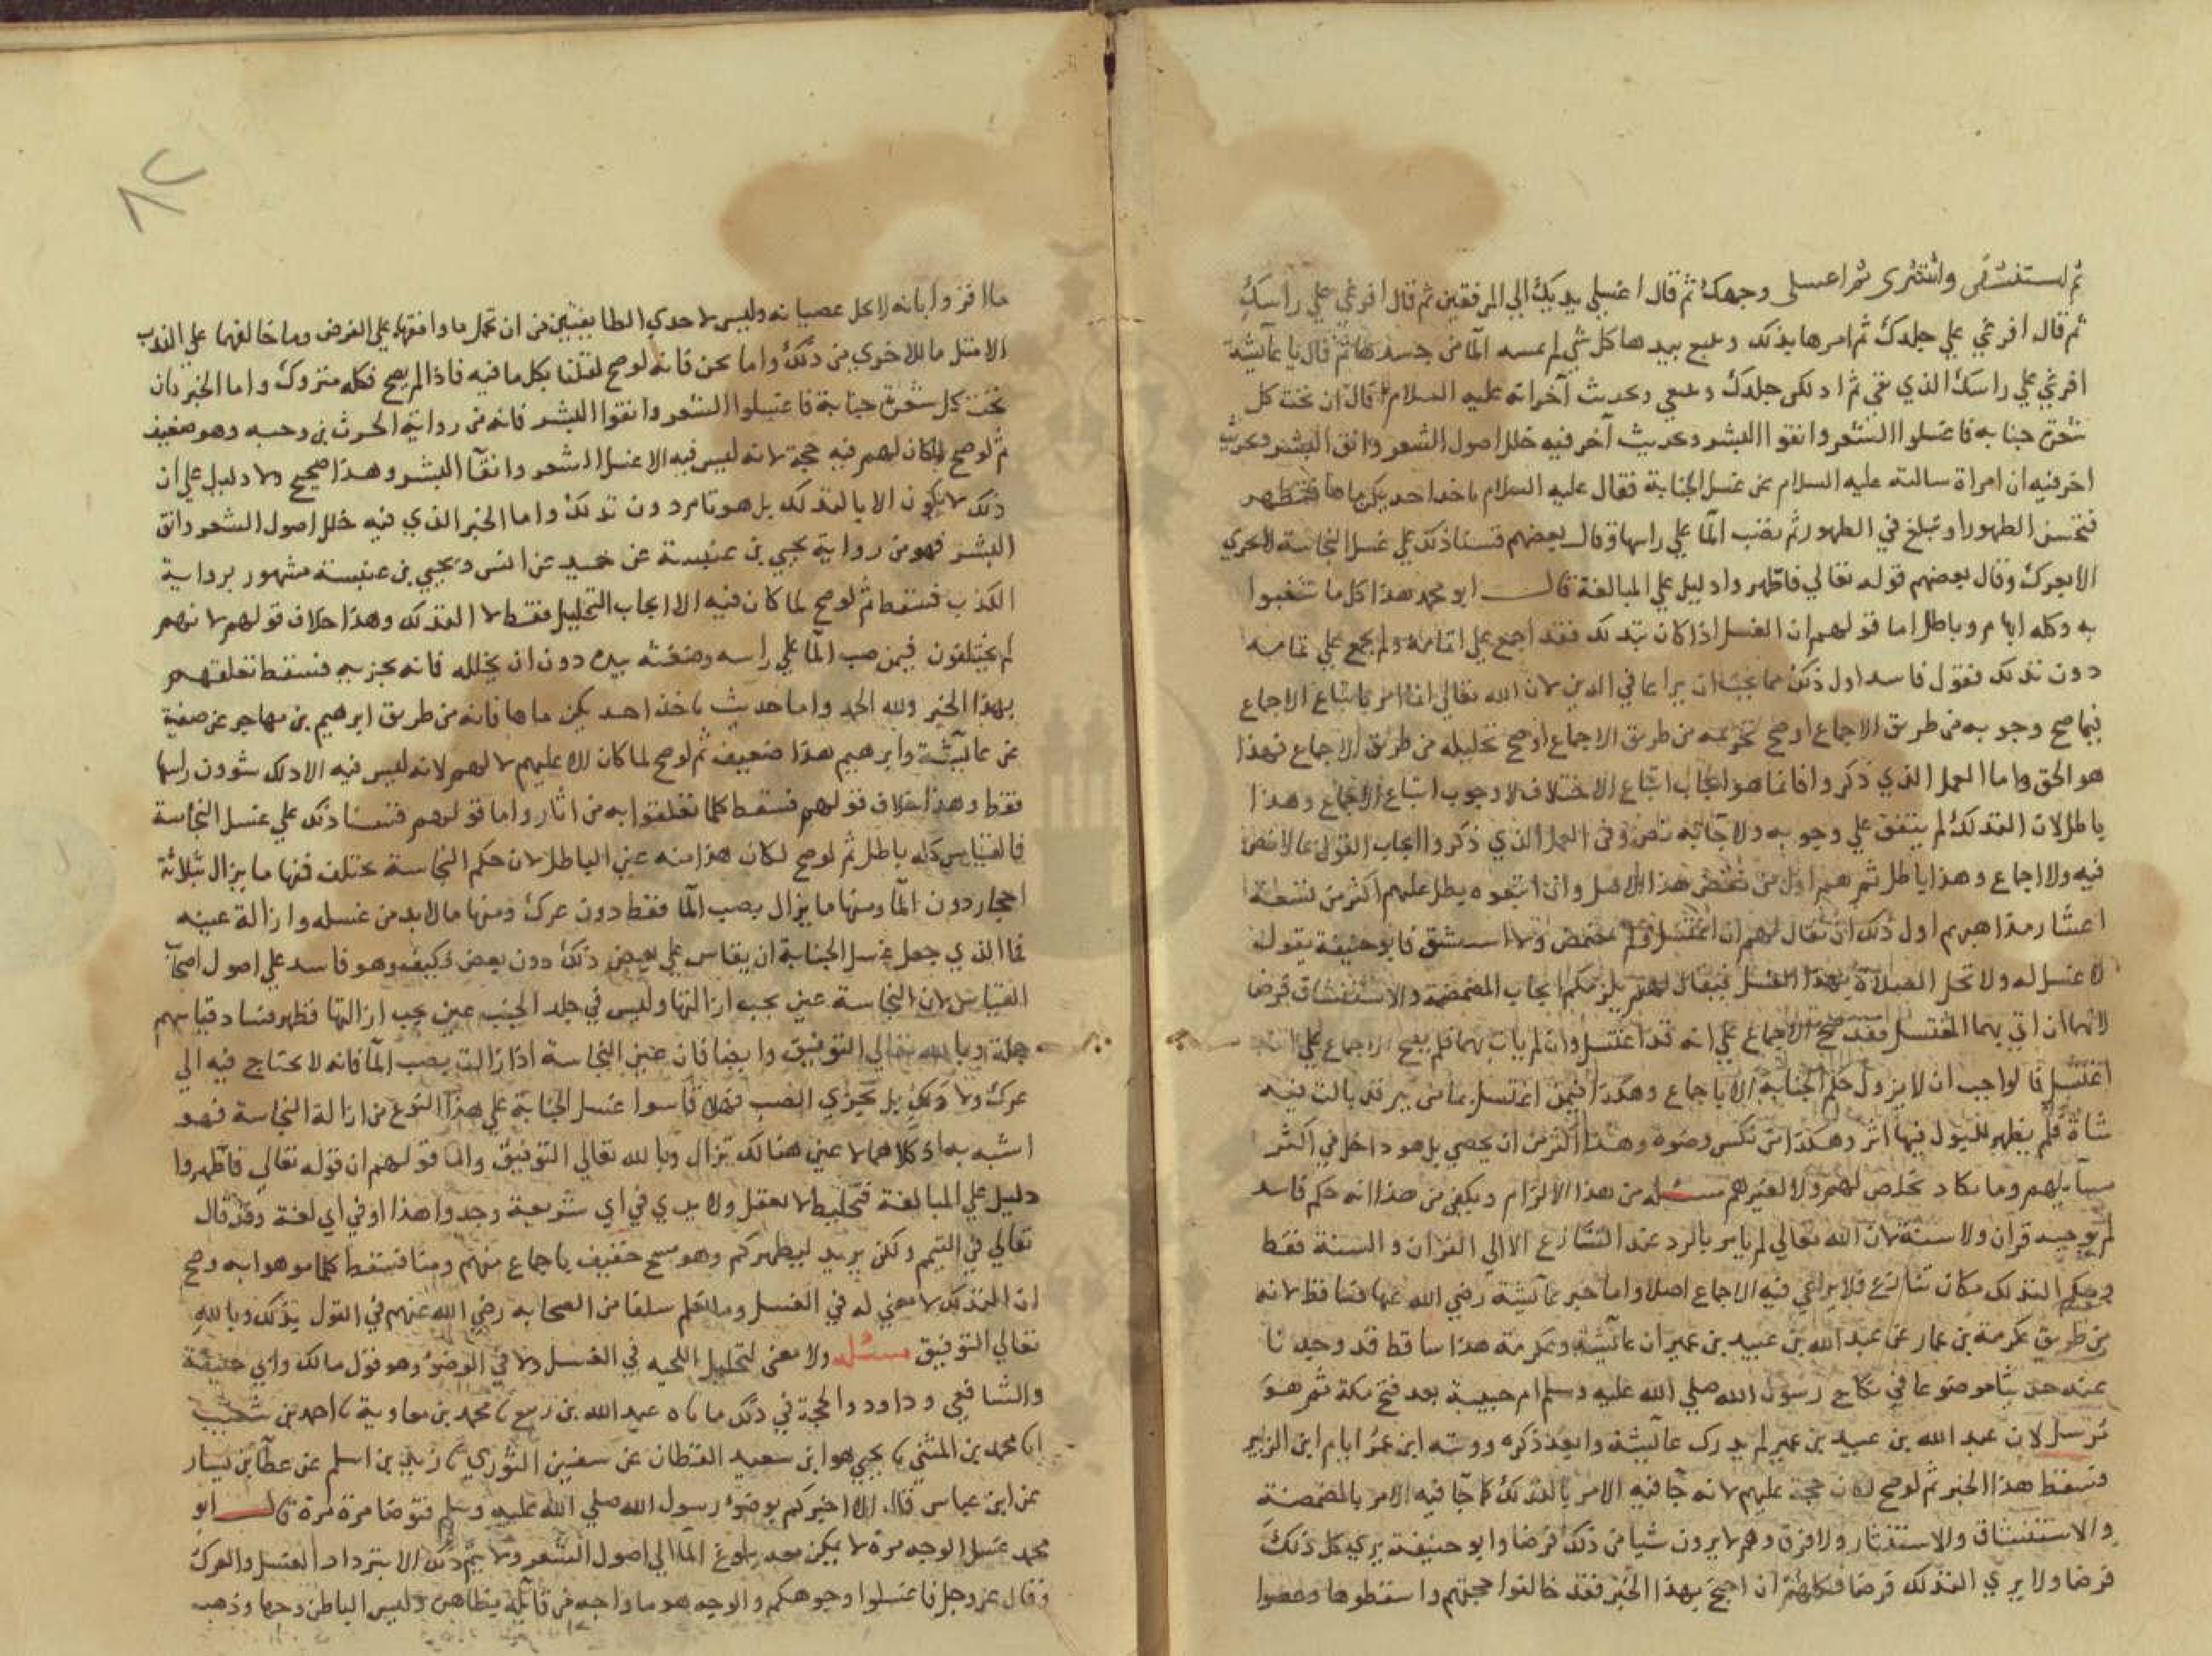 ثم استنشقي وانتثري ثم اغسلي وجهك ثم قال اغسلي يديك الي المرفقين ثم قال افرغي علي راسك
ثم قال افرغي علي جلدك ثم امرها بذلك وتتبع بيدها كل شي لم يمسه الما من جسدها ثم قال يا عآيشة
افرغي علي راسك الذي بقي ثم ادلكي جلدك وتتبعي وبحديث آخر انه عليه السلام قال ان تحت كل
شعرة جنابة فاغسلوا الشعر وانقوا البشر وبحديث آخر فيه خلل اصول الشعر وانق البشر وبحديث
اخر فيه ان امراة سالته عليه السلام عن غسل الجنابة فقال عليه السلام تاخذ احديكن ماها فتطهر
فتحسن الطهور او تبلغ في الطهور ثم تصب الما علي راسها وقال بعضهم قسنا ذلك علي غسل النجاسة لا تجزي
الا بعرك وقال بعضهم قوله تعالي فاطهروا دليل علي المبالغة قال ابو محمد هذا كل ما شغبوا
به وكله ايهام وباطل اما قولهم ان الغسل اذا كان بتدلك فقد اجمع علي اتمامه ولم يجمع علي تمامه
دون تدلك فقول فاسد اول ذلك مما يجب ان يراعا في الدين لان الله تعالي انما امر باتباع الاجماع
فيما صح وجوبه من طريق الاجماع او صح تحريمه من طريق الاجماع او صح تحليله من طريق الاجماع فهذا
هو الحق واما العمل الذي ذكروا فانما هو ايجاب اتباع الاختلاف لا وجوب اتباع الاجماع وهذا
باطل لان التدلك لم يتفق علي وجوبه ولا جا به نص وفي العمل الذي ذكروا ايجاب القول بما لا نص
فيه ولا اجماع وهذا باطل ثم هم اول من نقض هذا الاصل وان اتبعوه بطل عليهم اكثر من تسعة
اعشار مذاهبهم اول ذلك ان يقال لهم ان اغتسل ولم يمضمض ولا استنشق فابو حنيفة يقول
لا غسل له ولا تحل الصلاة بهذا الغسل فيقال لهم يلزمكم ايجاب المضمضة والاستنشاق فرضا
لانها ان اتي بهما المغتسل فقد صح الاجماع علي انه قد اغتسل وان لم يات بهما فلم يصح الاجماع علي انه
اغتسل فالواجب ان لا يزول حكم الجنابة الا باجماع وهكذا فيمن اغتسل بما من بير قد بالت فيه
شاة فلم يظهر للبول فيها اثر وهكذا من نكس وضوه وهذا اكثر من ان يحصي بل هو داخل في اكثر
مسايلهم وما يكاد يخلص لهم ولا لغيرهم مسئله من هذا الالزام ويكفي من هذا انه حكم فاسد
لم يوجبه قران ولا سنة لان الله تعالي لم يامر بالرد عند التنازع الا الي القران والسنة فقط
وحكم التدلك مكان تنازع فلا يراعي فيه الاجماع اصلا واما خبر عآيشة رضي الله عنها فساقط لانه
من طريق عكرمة بن عمار عن عبد الله بن عبيد بن عمير ان عآيشة وعكرمة هذا ساقط قد وجدنا
عنه حديثا موضوعا في نكاح رسول الله صلي الله عليه وسلم ام حبيبة بعد فتح مكة ثم هو
مرسل لان عبد الله بن عبيد بن عمير لم يدرك عآيشة وابعد ذكره روىته ابن عمر ايام ابن الزبير
فسقط هذا الخبر ثم لو صح لكان حجة عليهم لانه جآ فيه الامر بالتدلك كما جآ فيه الامر بالمضمضة
والاستنشاق والاستنثار ولا فرق وهم لا يرون شيا من ذلك فرضا وابو حنيفة يري كل ذلك
فرضا ولا يري التدلك فرضا فكلهم ان احتج بهذا الخبر فقد خالفوا حجتهم واسقطوها وعصوا
ما اقروا بانه لا يحل عصيانه وليس لاحدي الطايفتين من ان تحمل ما وافقها علي الفرض وما خالفها علي الندب
الا مثل ما للاخري من ذلك واما نحن فانه لو صح لقلنا بكل ما فيه فاذا لم يصح فكله متروك واما الخبر بان
تحت كل شعرة جنابة فاغسلوا الشعر وانقوا البشر فانه من رواية الحرث بن وجيه وهو ضعيف
ثم لو صح لما كان لهم فيه حجة لانه ليس فيه الا غسل الشعر وانقآ البشر وهذا صحيح ولا دليل علي ان
ذلك لا يكون الا بالتدلك بل هو تام دون تدلك واما الخبر الذي فيه خلل اصول الشعر وانق
البشر فهو من رواية يحيي بن عنبسة عن حميد عن انس ويحيي بن عنبسة مشهور برواية
الكذب فسقط ثم لو صح لما كان فيه الا ايجاب التخليل فقط لا التدلك وهذا خلاف قولهم لانهم
لم يختلفون فيمن صب الما علي راسه ومعثه بيده دون ان يخلله فانه يجزيه فسقط تعلقهم
بهذا الخبر ولله الحمد واما حديث تاخذ احديكن ماها فانه من طريق ابرهيم بن مهاجر عن صفية
عن عآيشة وابرهيم هذا ضعيف ثم لو صح لما كان الا عليهم لا لهم لانه ليس فيه الا دلك شوون راسها
فقط وهذا خلاف قولهم فسقط كلما تعلقوا به من اثار واما قولهم قسنا ذلك علي غسل النجاسة
فالقياس كله باطل ثم لو صح لكان هذا منه عين الباطل لان حكم النجاسة يختلف فمنها ما يزال بثلاثة
احجار دون الما ومنها ما يزال بصب الما فقط دون عرك ومنها ما لا بد من غسله وازالة عينه
فما الذي جعل غسل الجنابة ان يقاس علي بعض ذلك دون بعض فكيف وهو فاسد علي اصول اصحاب
القياس لان النجاسة عين يجب ازالتها وليس في جلد الجنب عين يجب ازالتها فظهر فساد قياسهم
جملة وبالله تعالي التوفيق وايضا فان عين النجاسة اذا زالت بصب الما فانه لا يحتاج فيه الي
عرك ولا دلك بل يجزي الصب فهلا قاسوا غسل الجنابة علي هذا النوع من ازالة النجاسة فهو
اشبه به اذ كلاهما لا عين هنالك تزال وبالله تعالي التوفيق واما قولهم ان قوله تعالي فاطهروا
دليل علي المبالغة فتخليط لا يعقل ولا يدري في اي شريعة وجدوا هذا او في اي لغة وقد قال
تعالي في التيمم ولكن يريد ليطهركم وهو مسح خفيف باجماع منهم ومنا فسقط كلما موهوا به وصح
ان التدلك لا معني له في الغسل وما نعلم سلفا من الصحابة رضي الله عنهم في القول بذلك وبالله
تعالي التوفيق مسئله ولا معنى لتخليل اللحيه في الغسل ولا في الوضوء وهو قول مالك وابي حنيفة
والشافعي وداود والحجة في ذلك ما ناه عبد الله بن ربيع نا محمد بن معاوية نا احمد بن شعيب
انا محمد بن المثني نا يحيي هو ابن سعيد القطان عن سفين الثوري نا زيد بن اسلم عن عطآ بن يسار
عن ابن عباس قال الا اخبركم بوضوء رسول الله صلي الله عليه وسلم فتوضا مرة مرة قال ابو
محمد غسل الوجه مرة لا يمكن معه بلوغ المآ الي اصول الشعر ولا يتم ذلك الا بترداد الغسل والعرك
وقال عز وجل فاغسلوا وجوهكم والوجه هو ما واجه من قآبله بظاهره وليس الباطن وجها وذهب